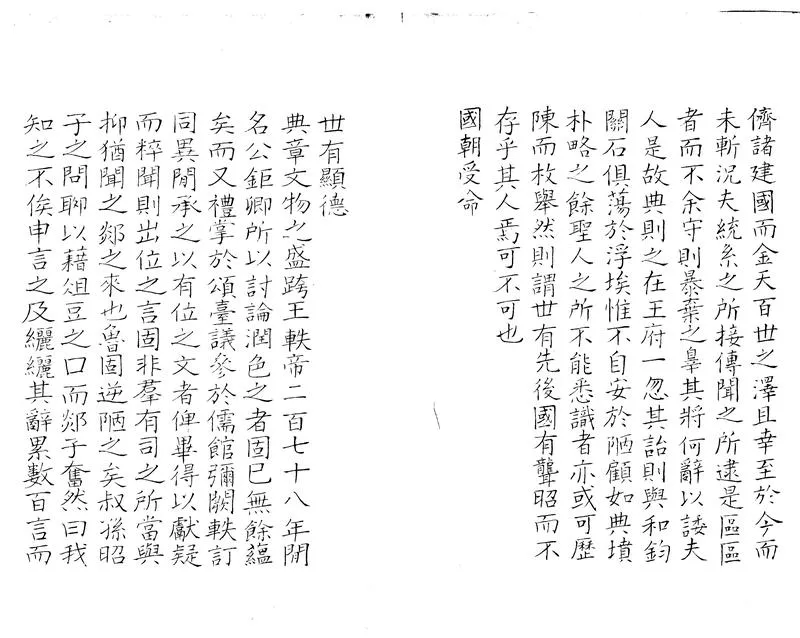 儕諸建國而金天百世之澤且幸至於今而
未斬況夫統系之所接傳聞之所逮是區區
者而不余守則暴棄之辠其將何辭以諉夫
人是故典則之在王府一忽其詒則與和鈞
關石俱蕩於浮埃惟不自安於陋顧如典墳
朴略之餘聖人之所不能悉識者亦或可歷
陳而枚舉然則謂世有先後國有聾昭而不
存乎其人焉可不可也
國朝受命
世有顯德
典章文物之盛跨王軼帝二百七十八年閒
名公鉅卿所以討論潤色之者固已無餘蘊
矣而又禮掌於頌臺議參於儒館彌闕軼訂
同異閒承之以有位之文者俾畢得以獻疑
而粹聞則出位之言固非羣有司之所當與
抑猶聞之郯之來也魯固逆陋之矣叔孫昭
子之問聊以藉俎豆之口而郯子奮然曰我
知之不俟申言之及纚纚其辭累數百言而